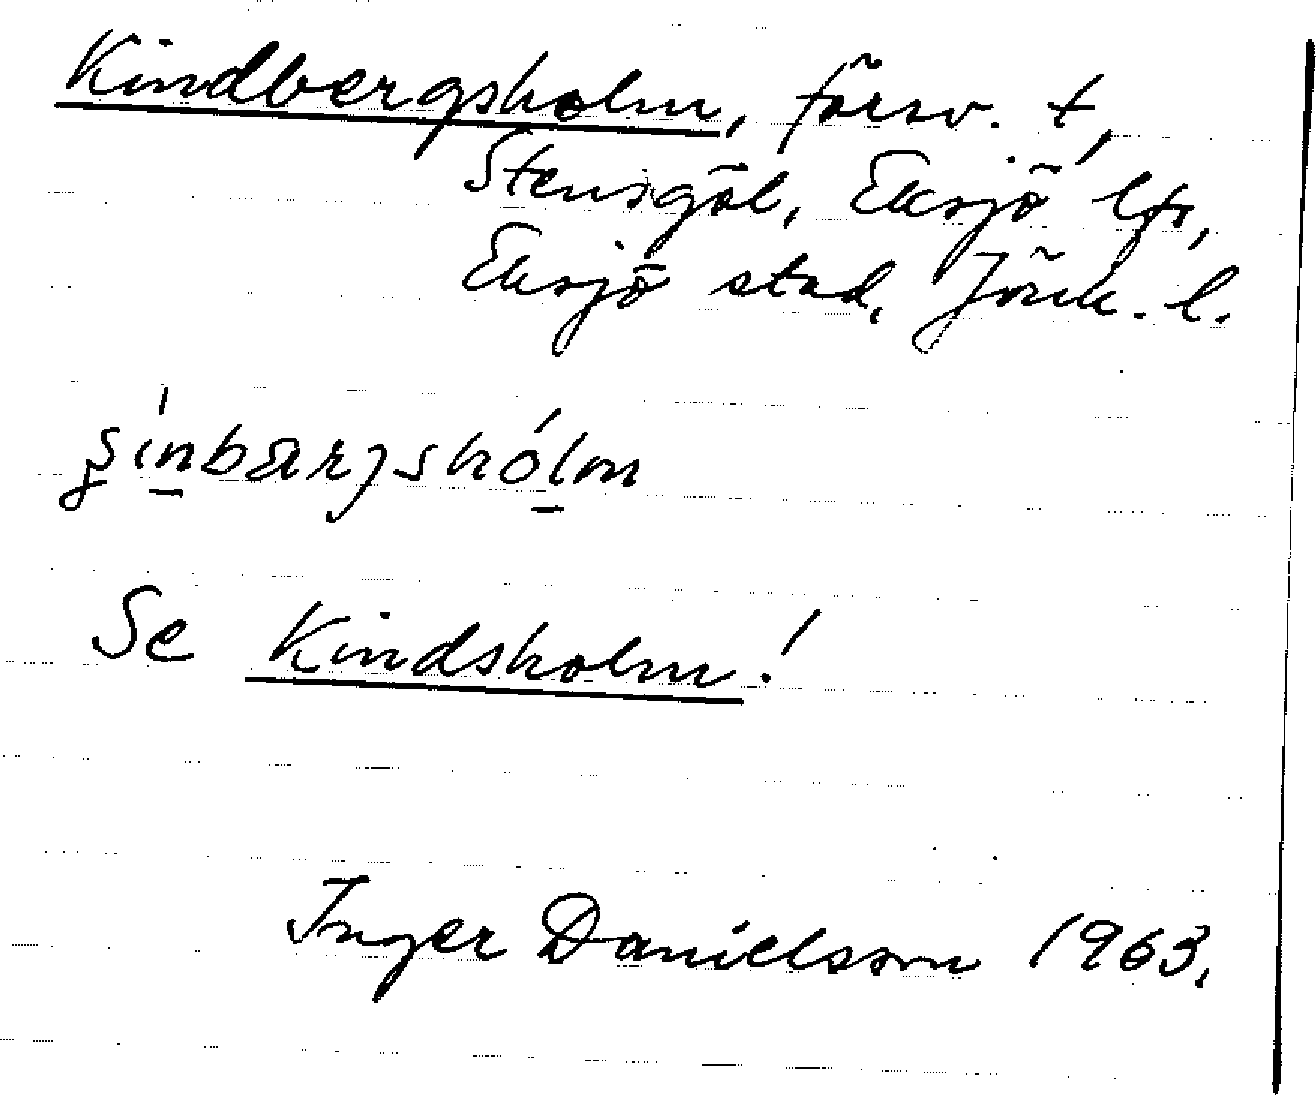 Kindbergsholm, försv. t,
Stensgöl, Eksjö lfs,
Eksjö stad, Jönk. l.
Se Kindsholm!
Inger Danielsson 1963.